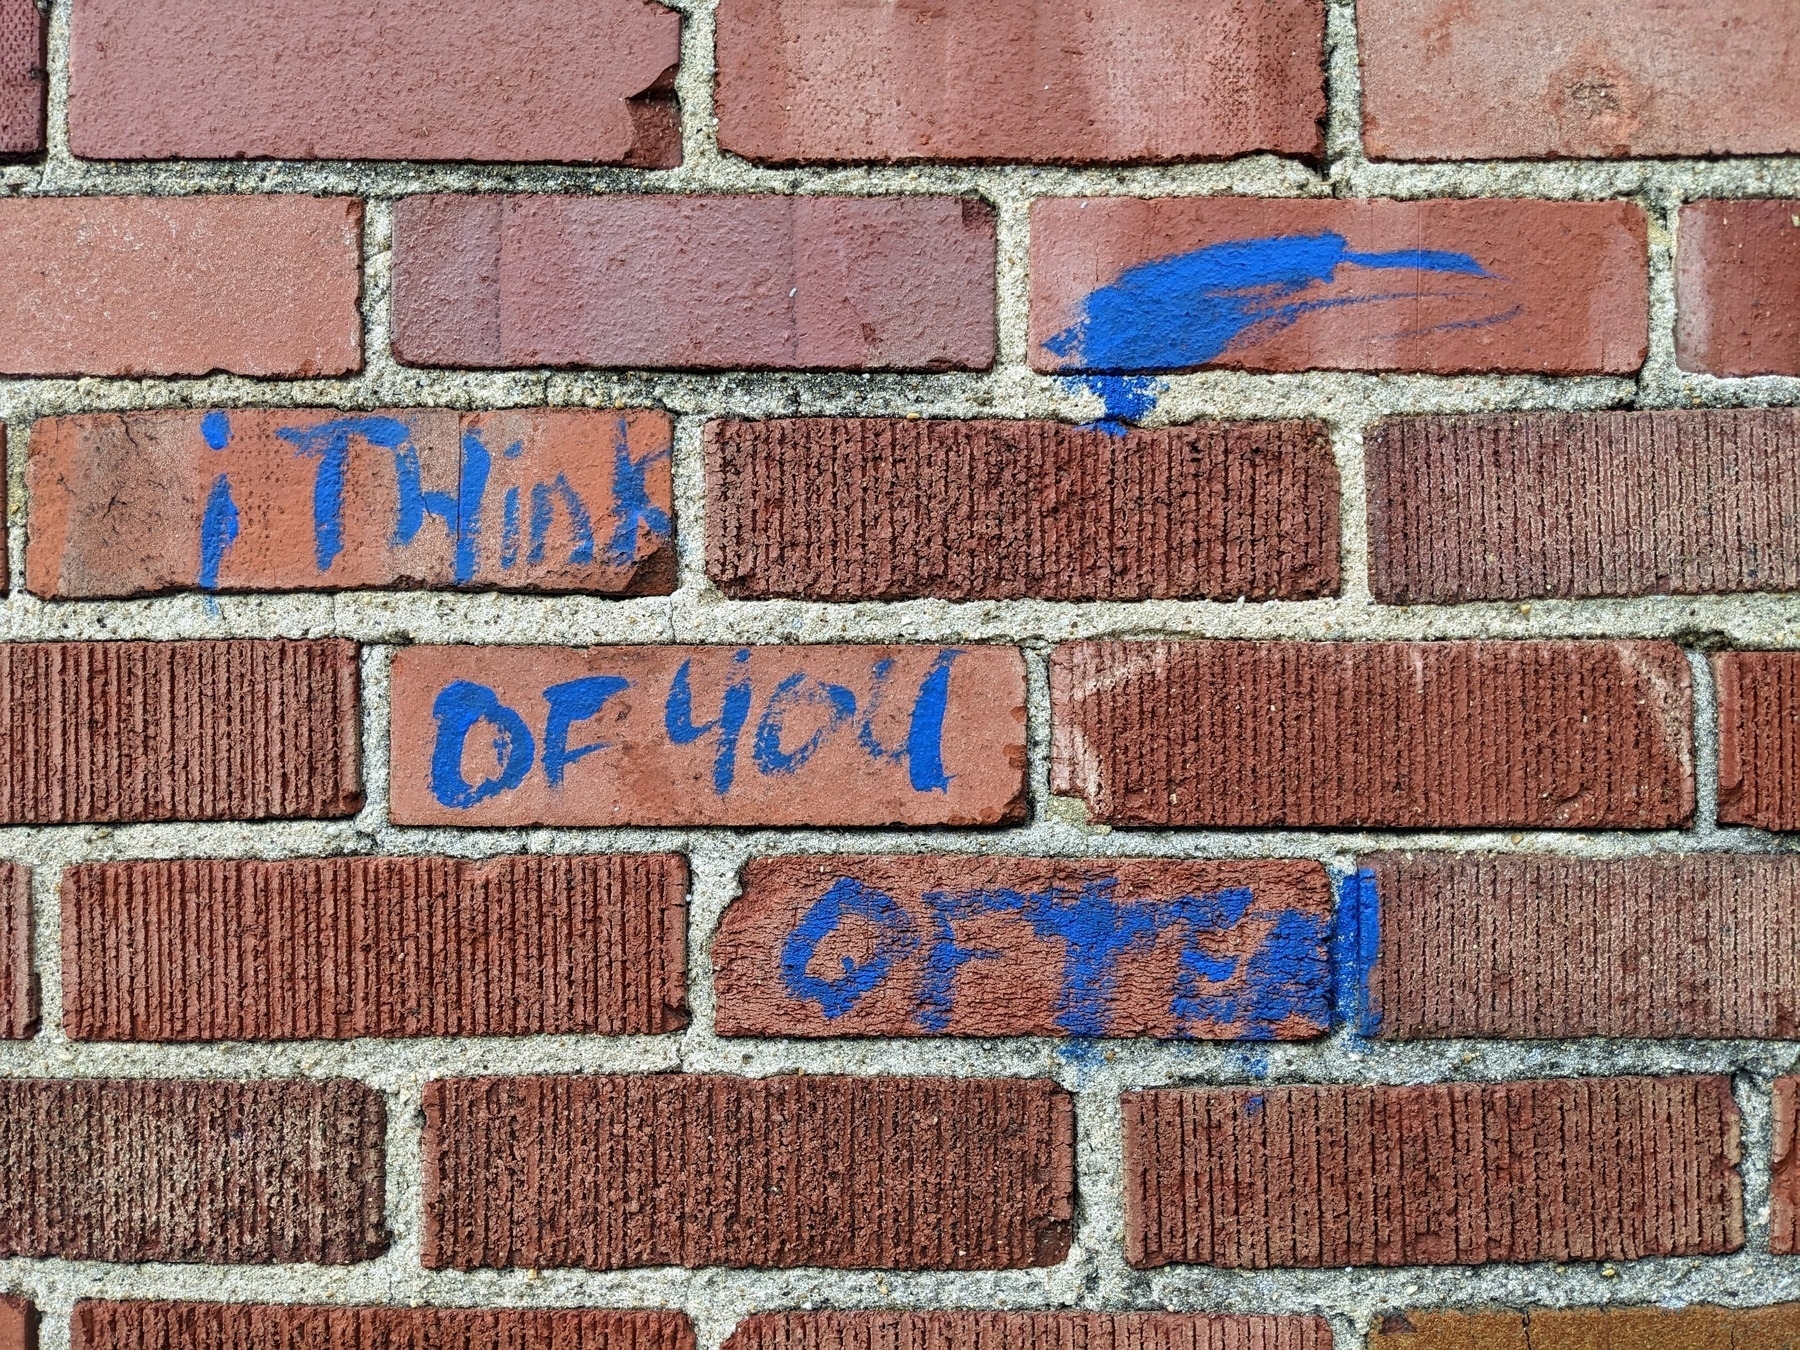 i THinK
OF YOU
OFTEN